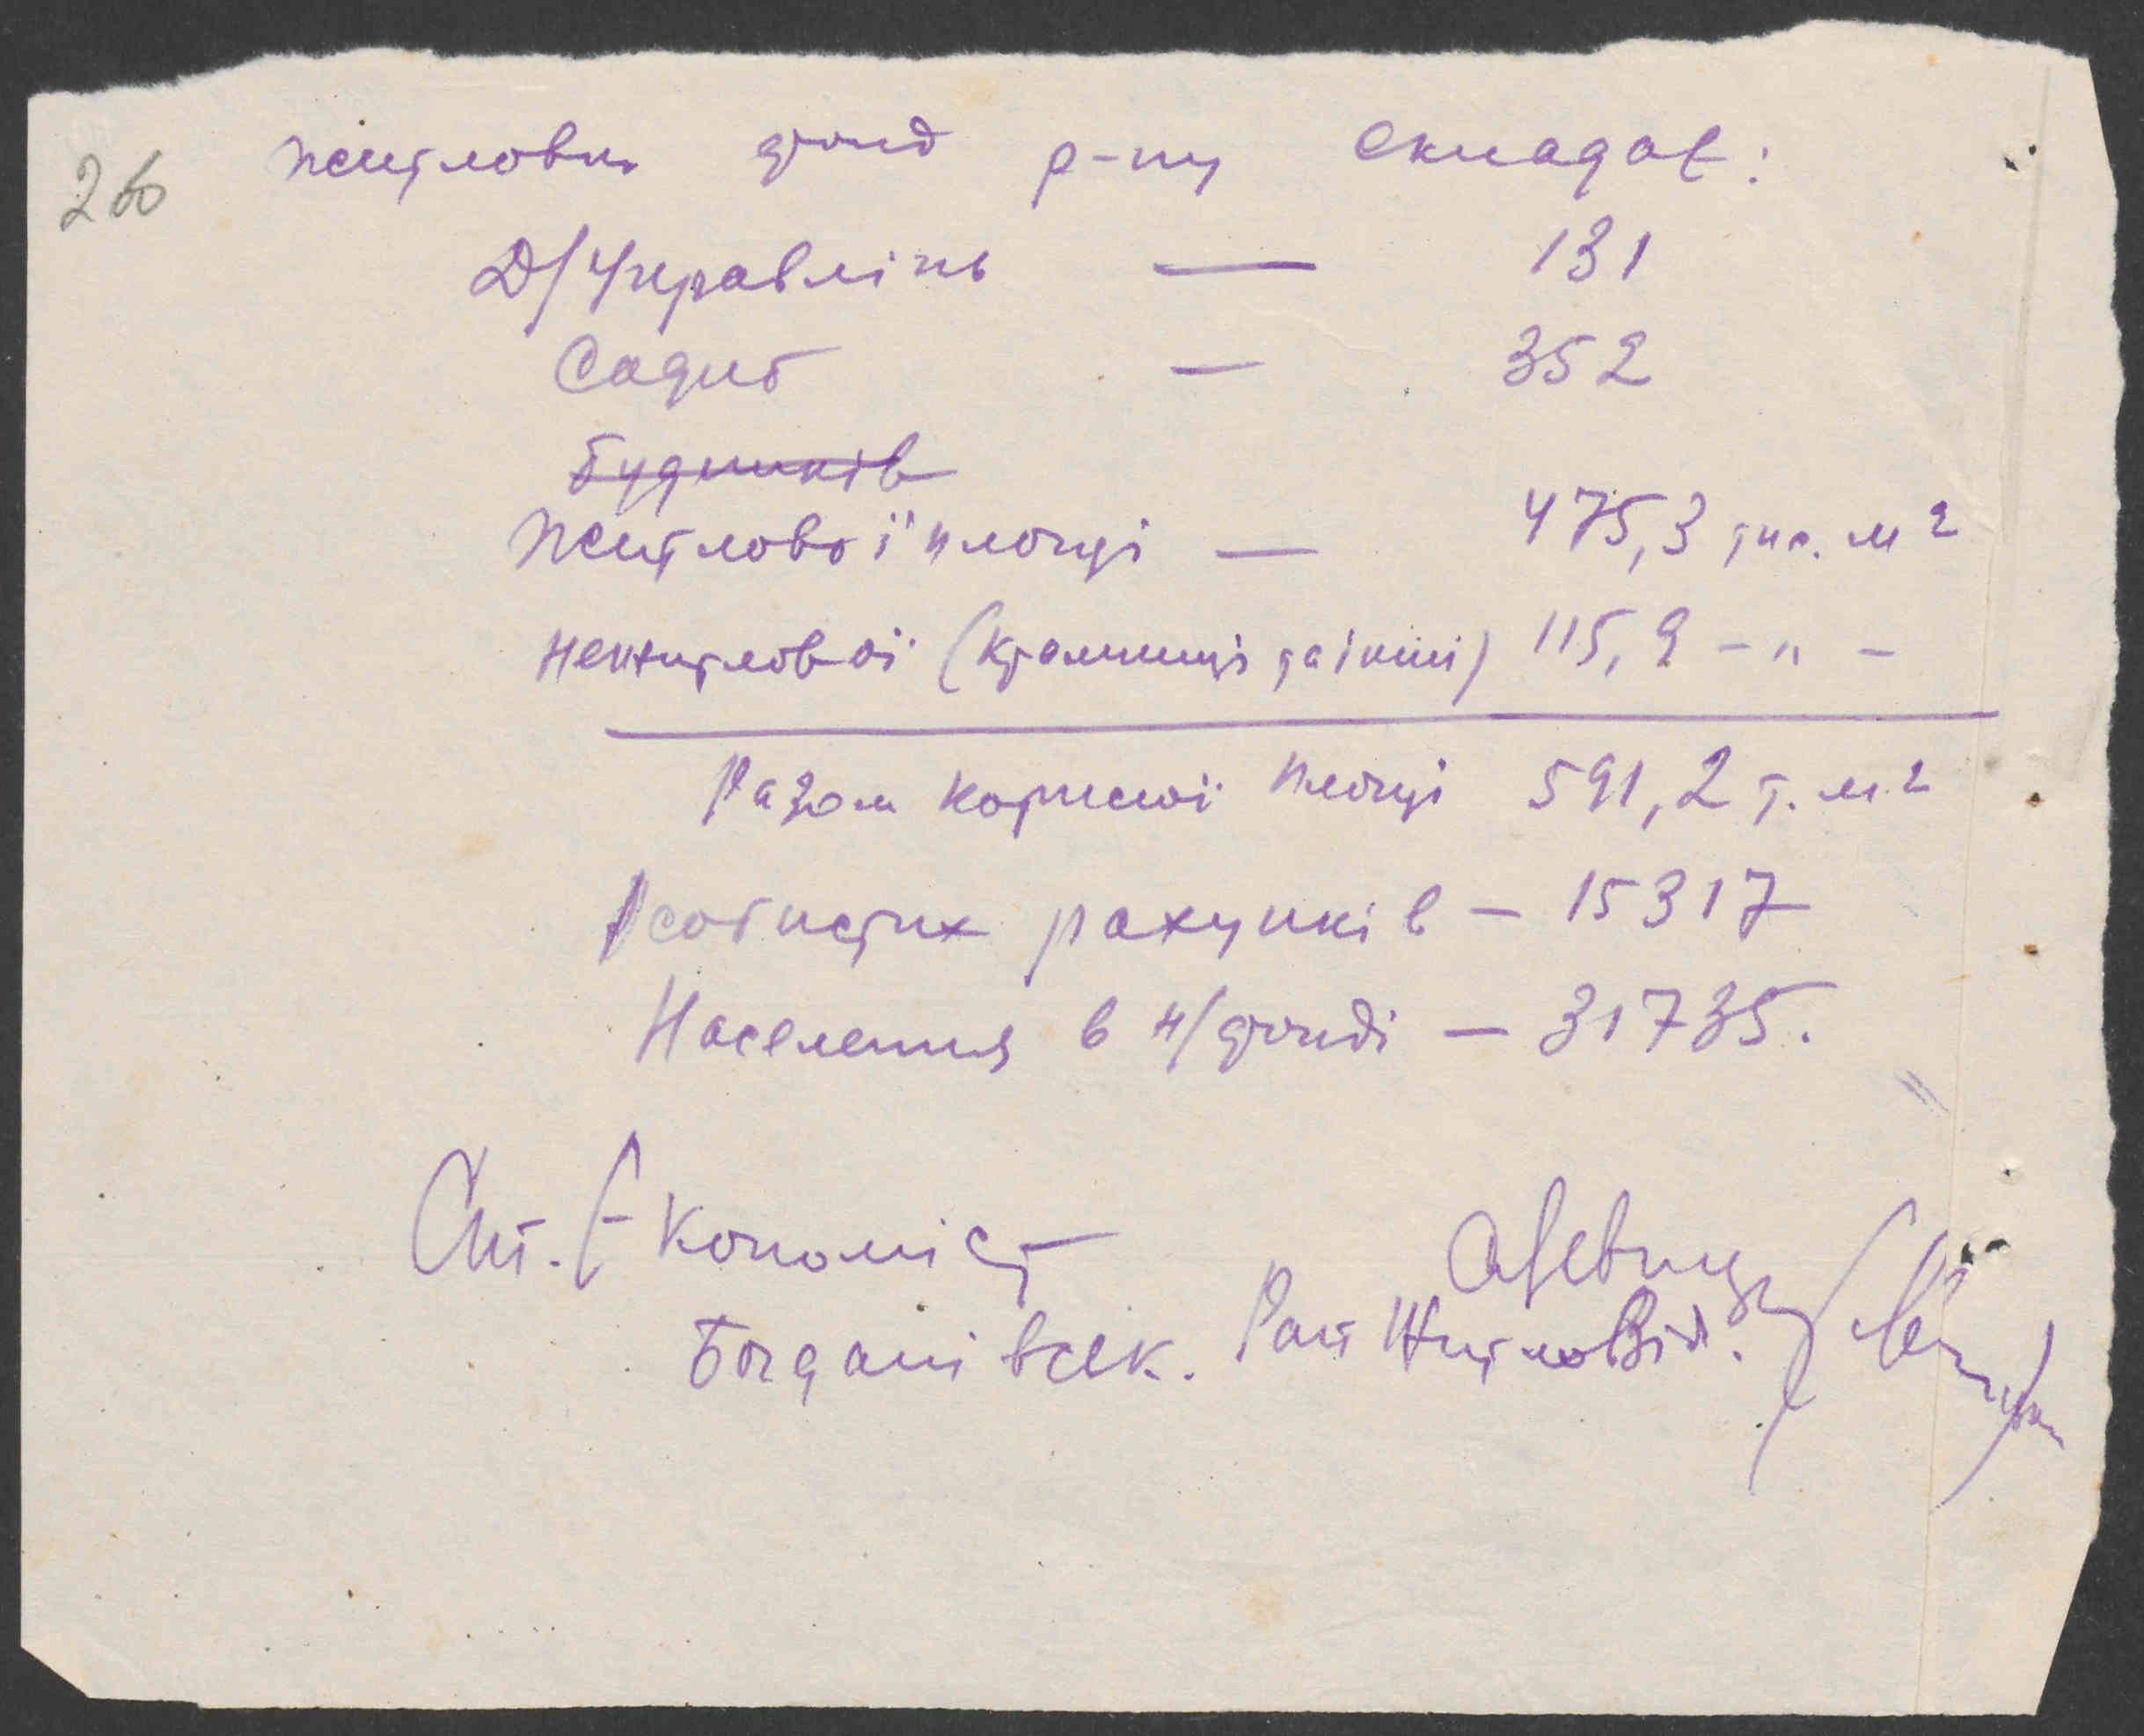 26
Житловий фонд р-ну складає:
Д/Управлінь — 131
Садиб — 352
Будинків
Житлової площі — 475,3 тис. м²
Нежитлової (крамниці та інші) 115,9 – " –
Разом корисної площі 591,2 т. м²
Особистих рахунків – 15317
Населення в н/фонді – 31735.
Ст. Економіст
Богданівськ. Рай ЖитлоВід.